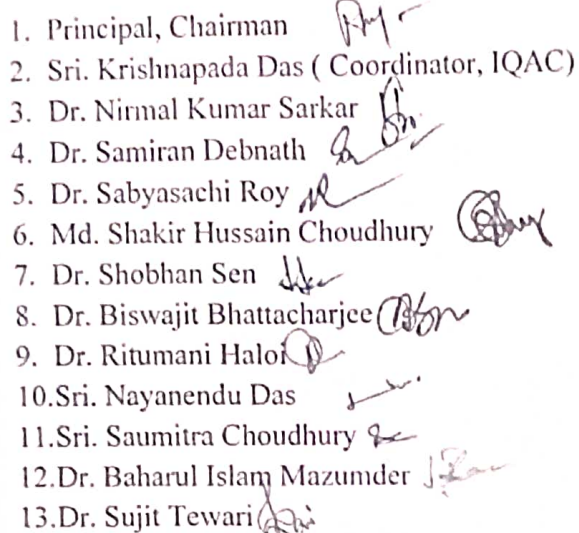 1. Principal, Chairman
2. Sri. Krishnapada Das ( Coordinator, IQAC)
3. Dr. Nirmal Kumar Sarkar
4. Dr. Samiran Debnath
5. Dr. Sabyasachi Roy
6. Md. Shakir Hussain Choudhury
7. Dr. Shobhan Sen
8. Dr. Biswajit Bhattacharjee
9. Dr. Ritumani Haloi
10.Sri. Nayanendu Das
11.Sri. Saumitra Choudhury
12.Dr. Baharul Islam Mazumder
13.Dr. Sujit Tewari